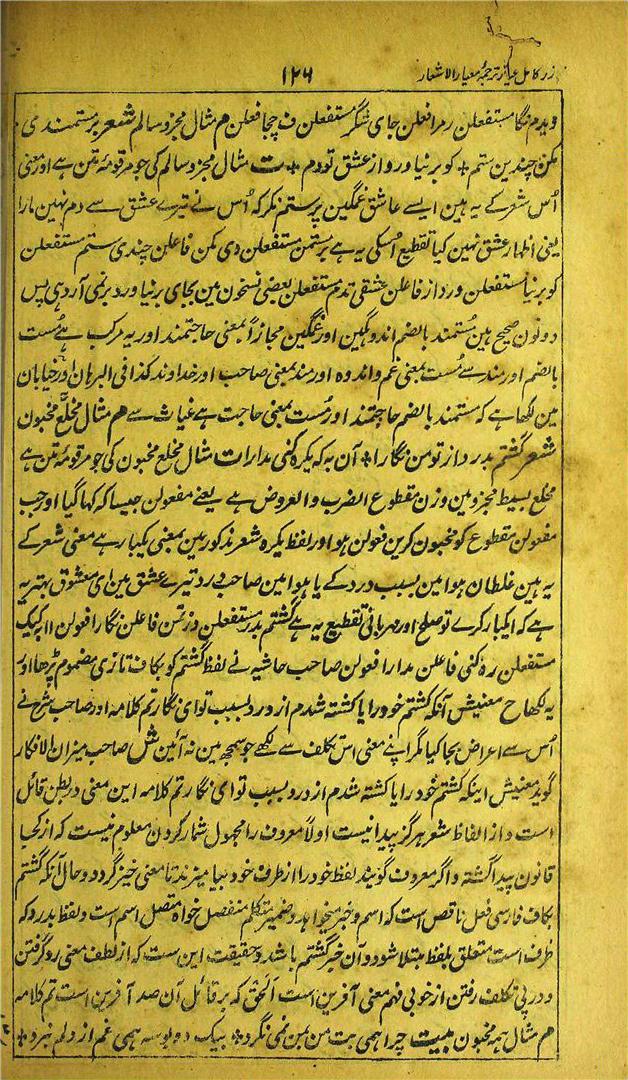 زر کامل عیار ترجمهٔ معیار الاشعار ۱۲۶
ویدم نگا مستفعلن رمرافعلن جای شگر مستفعلن ف چجا فعلن هم مثال مجزو سالم شعر بر مستمندی
مکن چندین ستم ٭ کو بر نیا ورد از عشق تو دم ٭ ت مثال مجزو سالم کی جو مرقومهٔ متن ہے اور معنی
اُس شعر کے یہ ہین ایسے عاشق غمگین پر ستم نکر کہ اُس نے تیرے عشق سے دم نہین مارا
یعنی اظهار عشق نہین کیا تقطیع اُسکی یہ ہے بر مستمن مستفعلن دی مکن فاعلن چندی ستم مستفعلن
کو بر نیا مستفعلن ورد از فاعلن عشقی تدم مستفعلن بعضی نسخون مین بجای بر نیا ورد بر نمی آرد ہی پس
دونون صحیح ہین مُستمند بالضم اندوہگین اور غمگین مجازاً بمعنی حاجتمند اور یہ مرکب ہے مُست
بالضم اور مند سے مُست بمعنی غم و اندوہ اور مند بمعنی صاحب اور خداوند کذا فی البرهان اور خیابان
مین لکھا ہے کہ مستمند بالضم حاجتمند اور مُست بمعنی حاجت ہے غیاث سے هم مثال مخلع مخبون
شعر گشتم بدرد از تو من نگارا ٭ آن به که یکره کنی مدارا ت مثال مخلع مخبون کی جو مرقومهٔ متن ہے
مخلع بسیط مجزو مین وزن مقطوع الضرب والعروض ہے یعنے مفعولن جیسا کہ کہا گیا اور جب
مفعولن مقطوع کو مخبون کرین فعولن ہو اور لفظ یکرہ شعر مذکور مین بمعنی یکبار ہے معنی شعر کے
یہ ہین غلطان ہوا مین بسبب درد کے یا ہوا مین صاحب درد تیرے عشق مین ای معشوق بہتر یہ
ہے کہ ایکبار کرے تو صلح اور مہربانی تقطیع یہ ہے گشتم بدر مستفعلن دز تمن فاعلن نگارا فعولن ااکیک
مستفعلن رہ کنی فاعلن مدارا فعولن صاحب حاشیہ نے لفظ گشتم کو بکاف تازی مضموم پڑھا اور
یہ لکھا ح معنیش آنکه کشتم خود را یا کشته شدم از درد بسبب تو ای نگار تم کلامه اور صاحب شرح نے
اُس سے اعراض بجا کیا مگر اپنے معنی اس تکلف سے لکھے جو سمجھ مین نہ آئین ش صاحب میزان الافکار
گوید معنیش اینکه کشتم خود را یا کشته شدم از درد بسبب تو ای نگار تم کلامه این معنی در بطن قائل
است و از الفاظ شعر هرگز پیدا نیست اولاً معروف را مجهول شمار کردن معلوم نیست که از کجا
قانون پیدا گشته و اگر معروف گویند لفظ خود را از طرف خود بیامیزند تا معنی خیز گردد و حال آنکه گشتم
بکاف فارسی فعل ناقص است که اسم و خبر میخواهد و ضمیر متکلم منفصل خواه متصل اسم است و لفظ بدرد که
ظرف است متعلق بلفظ مبتلا شود و آن خبر گشتم باشد و حقیقت این ست که از لطف معنی رو گرفتن
و در پی تکلف رفتن از خوبی فهم معنی آفرین است الحق که بر قائل آن صد آفرین است تم کلامه
هم مثال همه مخبون بیت چرا همی بت من بمن نمی نگرد ٭ بیک دو بوسه همی غم از دلم نبرد ٭